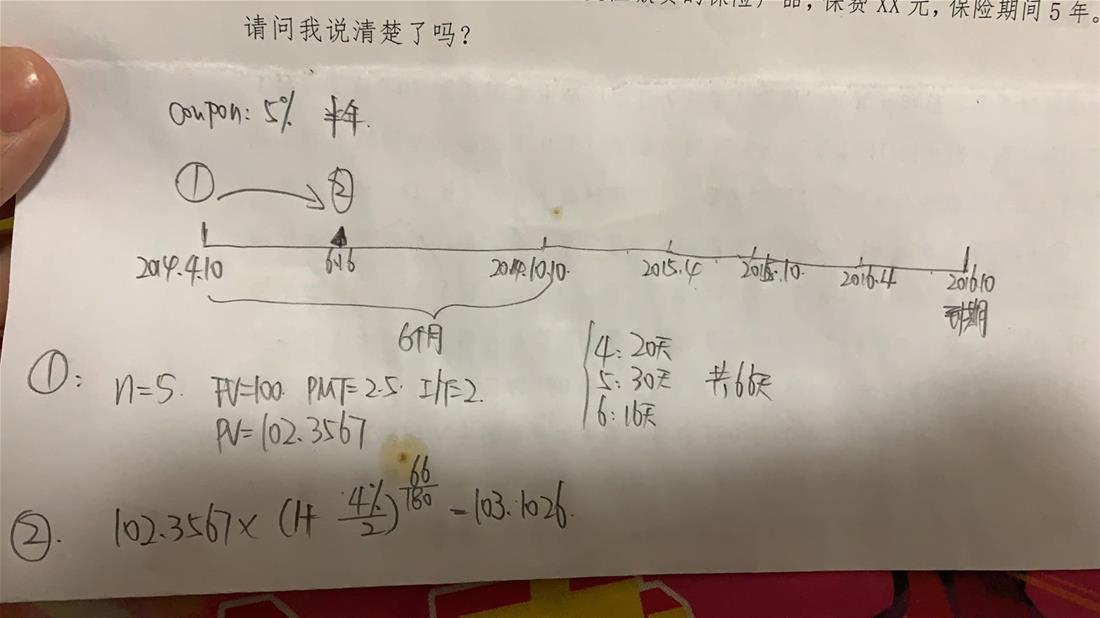 保险产品，保费XX元，保险期间5年。
请问我说清楚了吗？
coupon: 5% 半年.
① ②
2014.4.10 6.16 2014.10.10. 2015.4 2015.10. 2016.4 2016.10
到期
6个月
①: n=5. FV=100. PMT=2.5. I/Y=2.
PV=102.3567
4: 20天
5: 30天 共66天
6: 16天
②. 102.3567× (1+ 4%/2)^66/180 =103.1026.